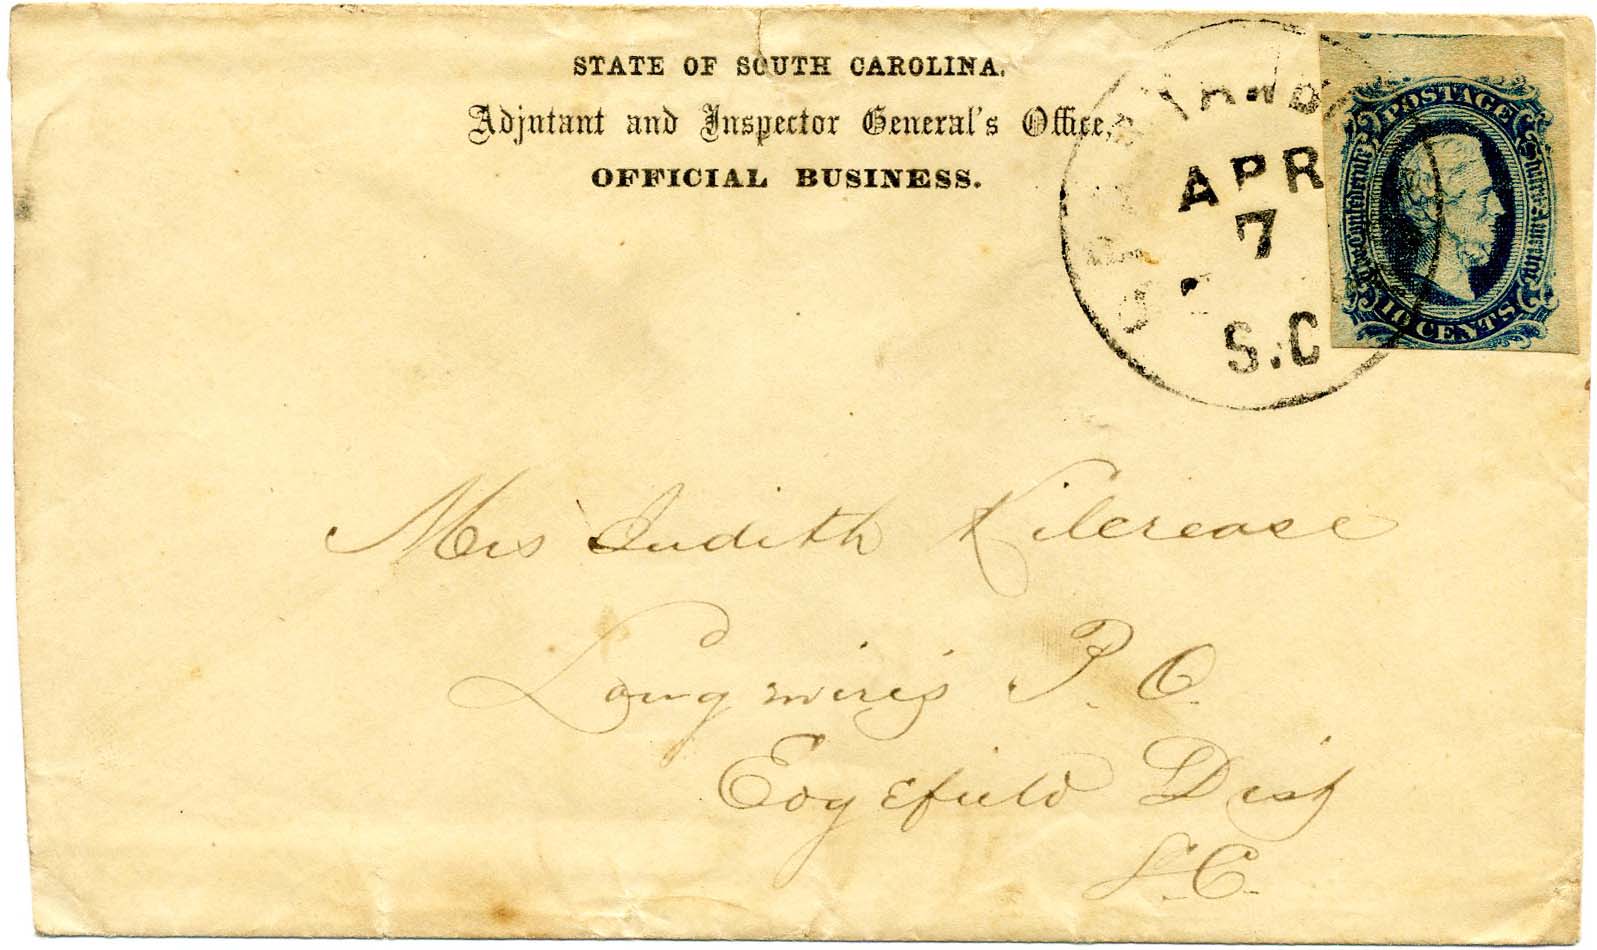 STATE OF SOUTH CAROLINA.
Adjutant and Inspector General's Office,
OFFICIAL BUSINESS.
APR
7
S.C
POSTAGE
The Confederate States of America
10 CENTS
Mrs Judith Kilcrease
Longmire's P. O.
Edgefield Dist
S. C.